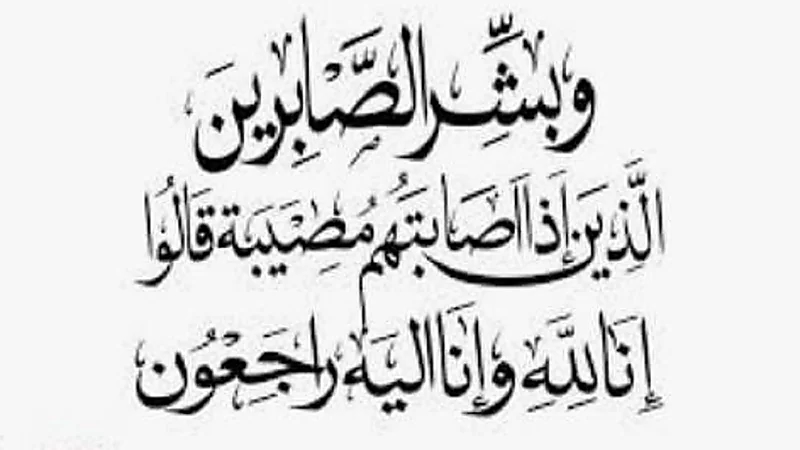 وبشِّرِ الصَّابِرِينَ
الَّذِينَ إِذَا أَصَابَتهُم مُصِيَبَة قَالُوُا
إِنَا لِلَّهِ وَإِنَا اليَه راجَعْوُن